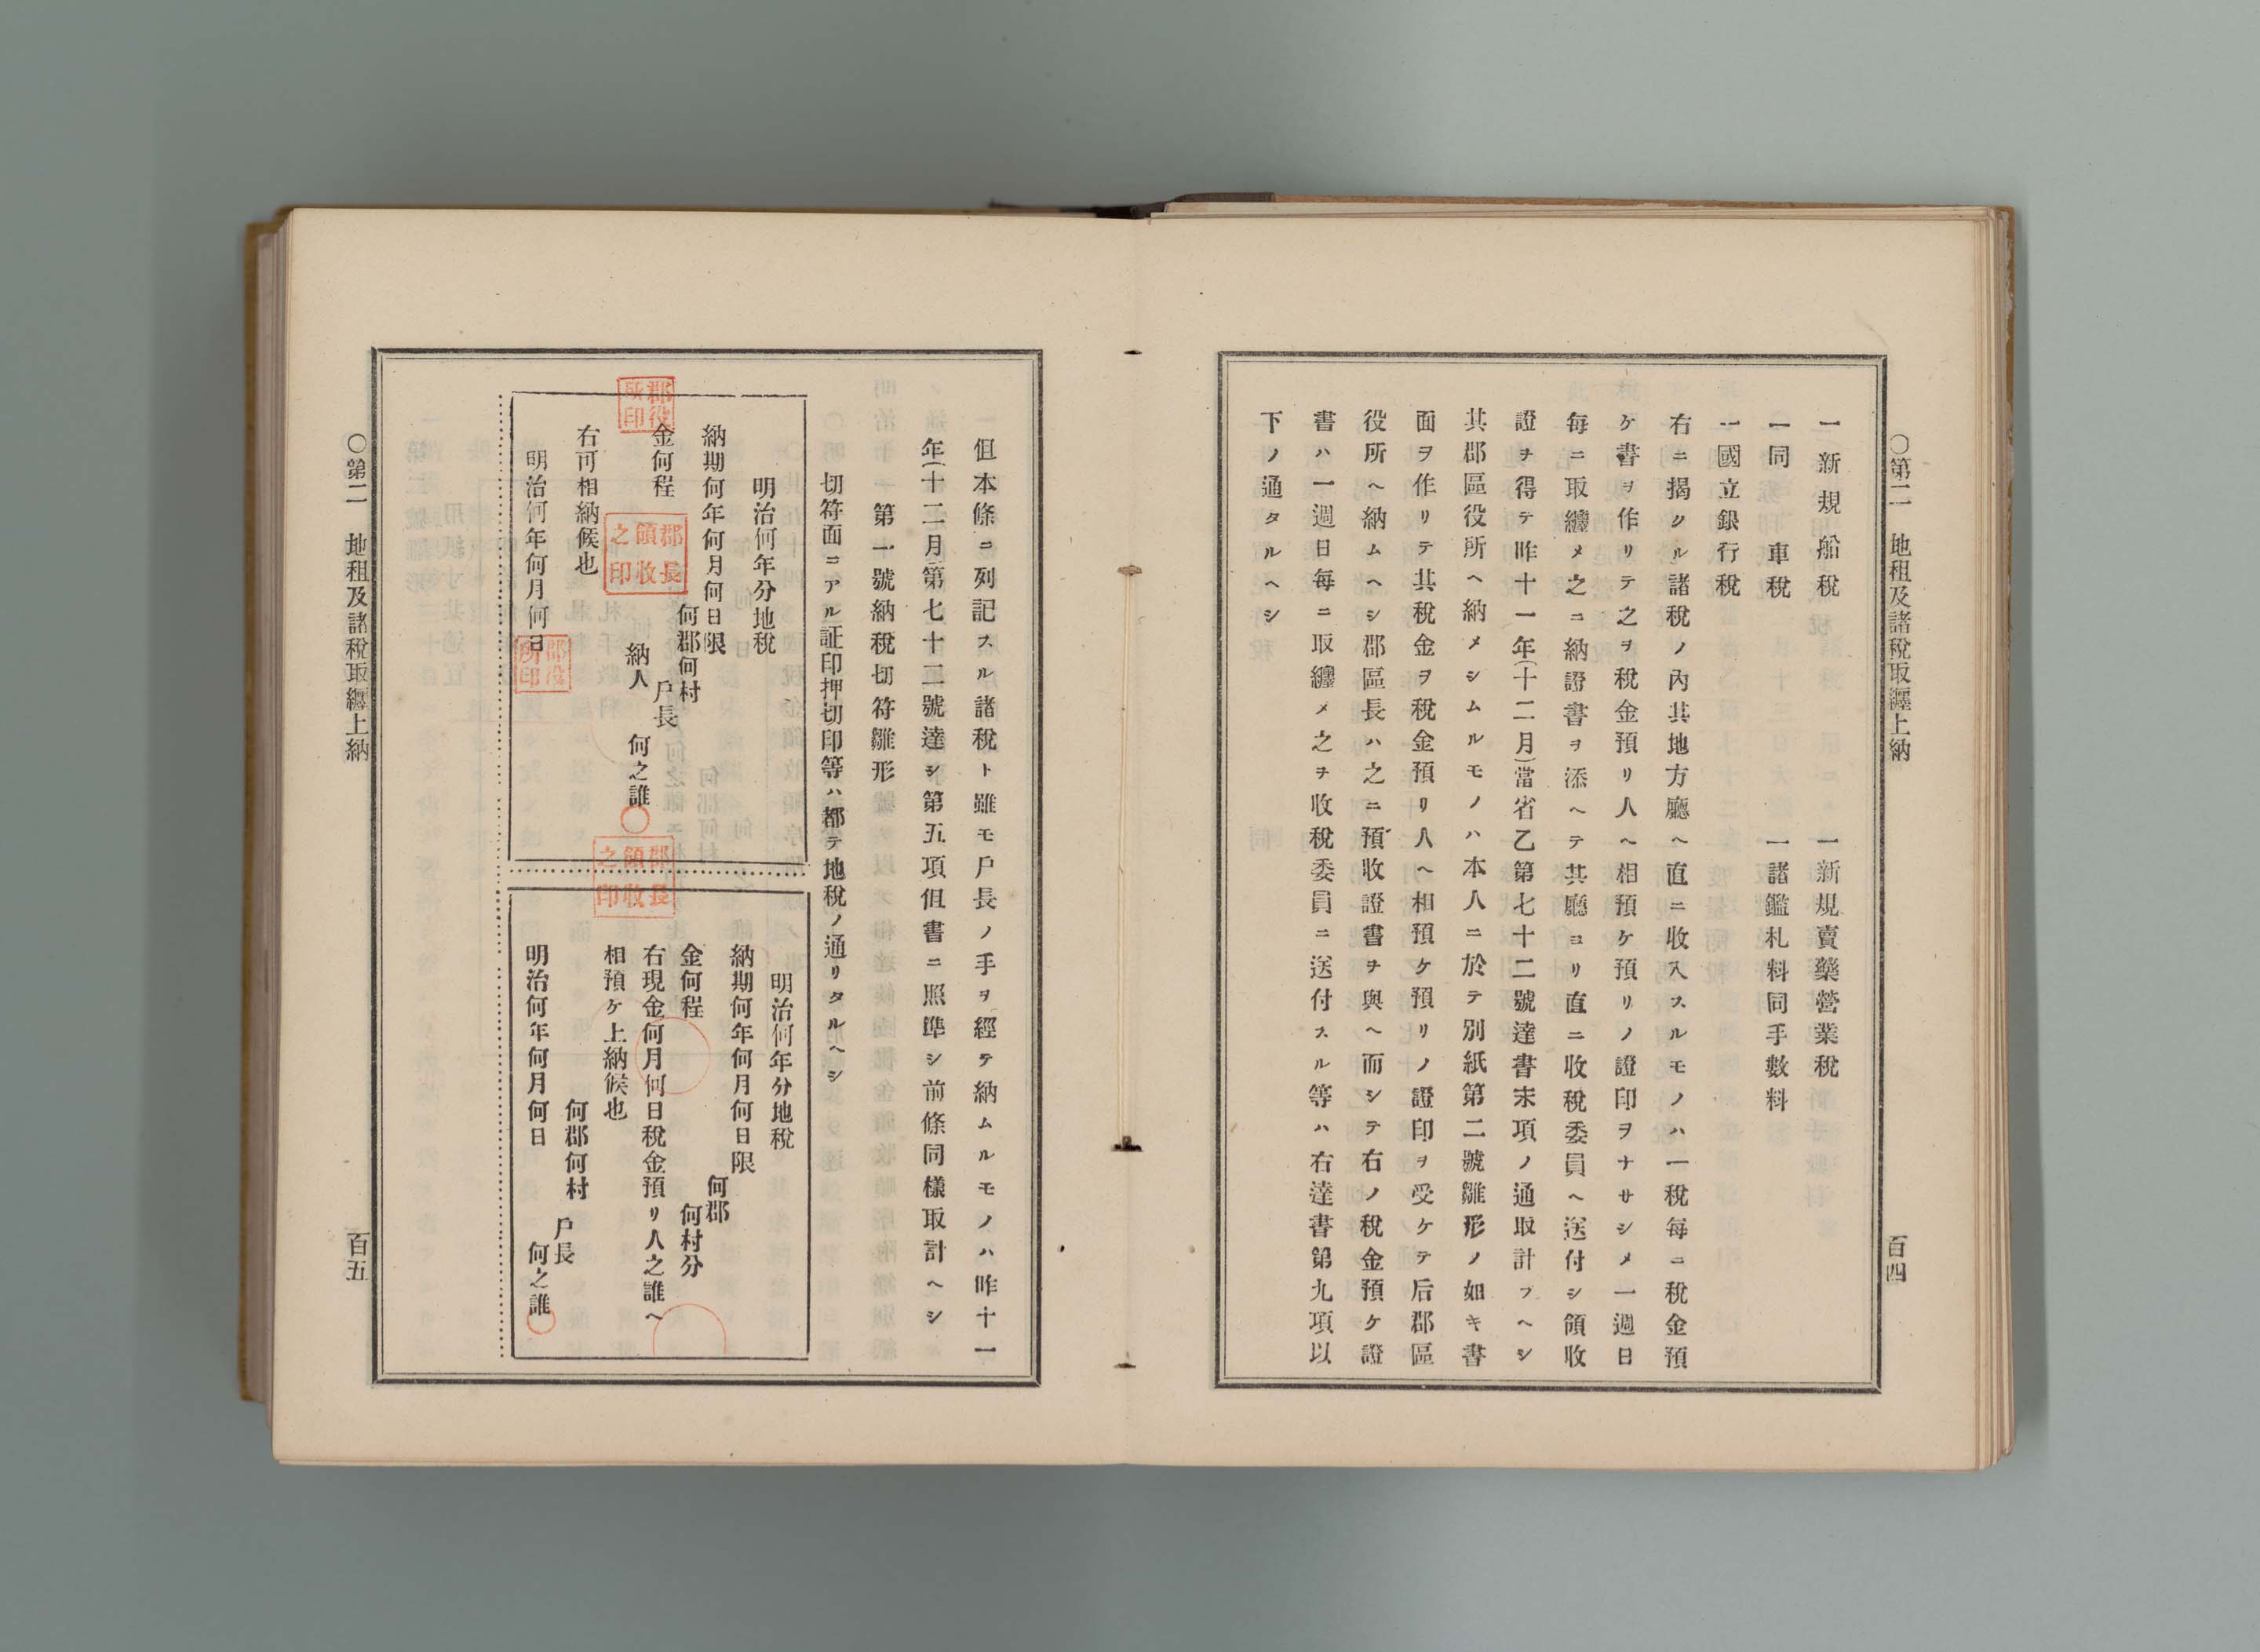 〇第二　地租及諸稅取纒上納　百四
一新規船稅　一新規賣藥營業稅
一同　車稅　一諸鑑札料同手數料
一國立銀行稅
右ニ揭クル諸稅ノ內其地方廳ヘ直ニ收入スルモノハ一稅每ニ稅金預
ケ書ヲ作リテ之ヲ稅金預リ人ヘ相預ケ預リノ證印ヲナサシメ一週日
每ニ取纒メ之ニ納證書ヲ添ヘテ其廳ヨリ直ニ收稅委員ヘ送付シ領收
證ヲ得テ昨十一年(十二月)當省乙第七十二號達書末項ノ通取計フヘシ
其郡區役所ヘ納メシムルモノハ本人ニ於テ別紙第二號雛形ノ如キ書
面ヲ作リテ其稅金ヲ稅金預リ人ヘ相預ケ預リノ證印ヲ受ケテ后郡區
役所ヘ納ムヘシ郡區長ハ之ニ預收證書ヲ與ヘ而シテ右ノ稅金預ケ證
書ハ一週日每ニ取纒メ之ヲ收稅委員ニ送付スル等ハ右達書第九項以
下ノ通タルヘシ
但本條ニ列記スル諸稅ト雖モ戶長ノ手ヲ經テ納ムルモノハ昨十一
年(十二月)第七十二號達シ第五項但書ニ照準シ前條同樣取計ヘシ
第一號納稅切符雛形
切符面ニアル証印押切印等ハ都テ地稅ノ通リタルヘシ
明治何年分地稅
納期何年何月何日限
何郡何村
金何程
戶長　何之誰
納人
右可相納候也
明治何年何月何日
郡役所印
郡長領收之印
郡役所印
郡長領收之印
明治何年分地稅
納期何年何月何日限
何郡
何村分
金何程
右現金何月何日稅金預リ人之誰ヘ
相預ケ上納候也
何郡何村
戶長
何之誰
明治何年何月何日
〇第二　地租及諸稅取纒上納　百五